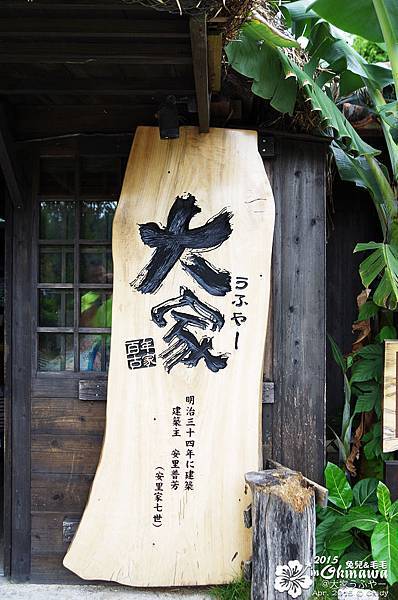 大家
うふやー
百年古家
明治三十四年に建築
建築主 安里普芳
(安里家七世)
2015
兔兒&毛毛
in Okinawa
@大家うふやー